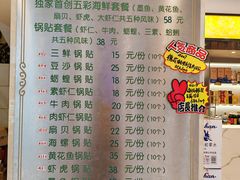 独家首创五彩海鲜套餐（墨鱼、黄花鱼、
扇贝、虾虎、大虾仁共五种风味）58 元
锅贴套餐（虾仁、牛肉、蛤蝗、三素、蛤蜊
共五种风味）38 元
三鲜锅贴 15 元/份（10个）
豆沙锅贴 15 元/份（10个）
蛎蝗锅贴 18 元/份（10个）
素虾仁锅贴 18 元/份（10个）
牛肉锅贴 20 元/份（10个）
肉虾仁锅贴 20 元/份（10个）
扇贝锅贴 22 元/份（10个）
海螺锅贴 25 元/份（10个）
黄花鱼锅贴 35 元/份（10个）
虾虎锅贴 38 元/份（10个）
人气商品
店长推介